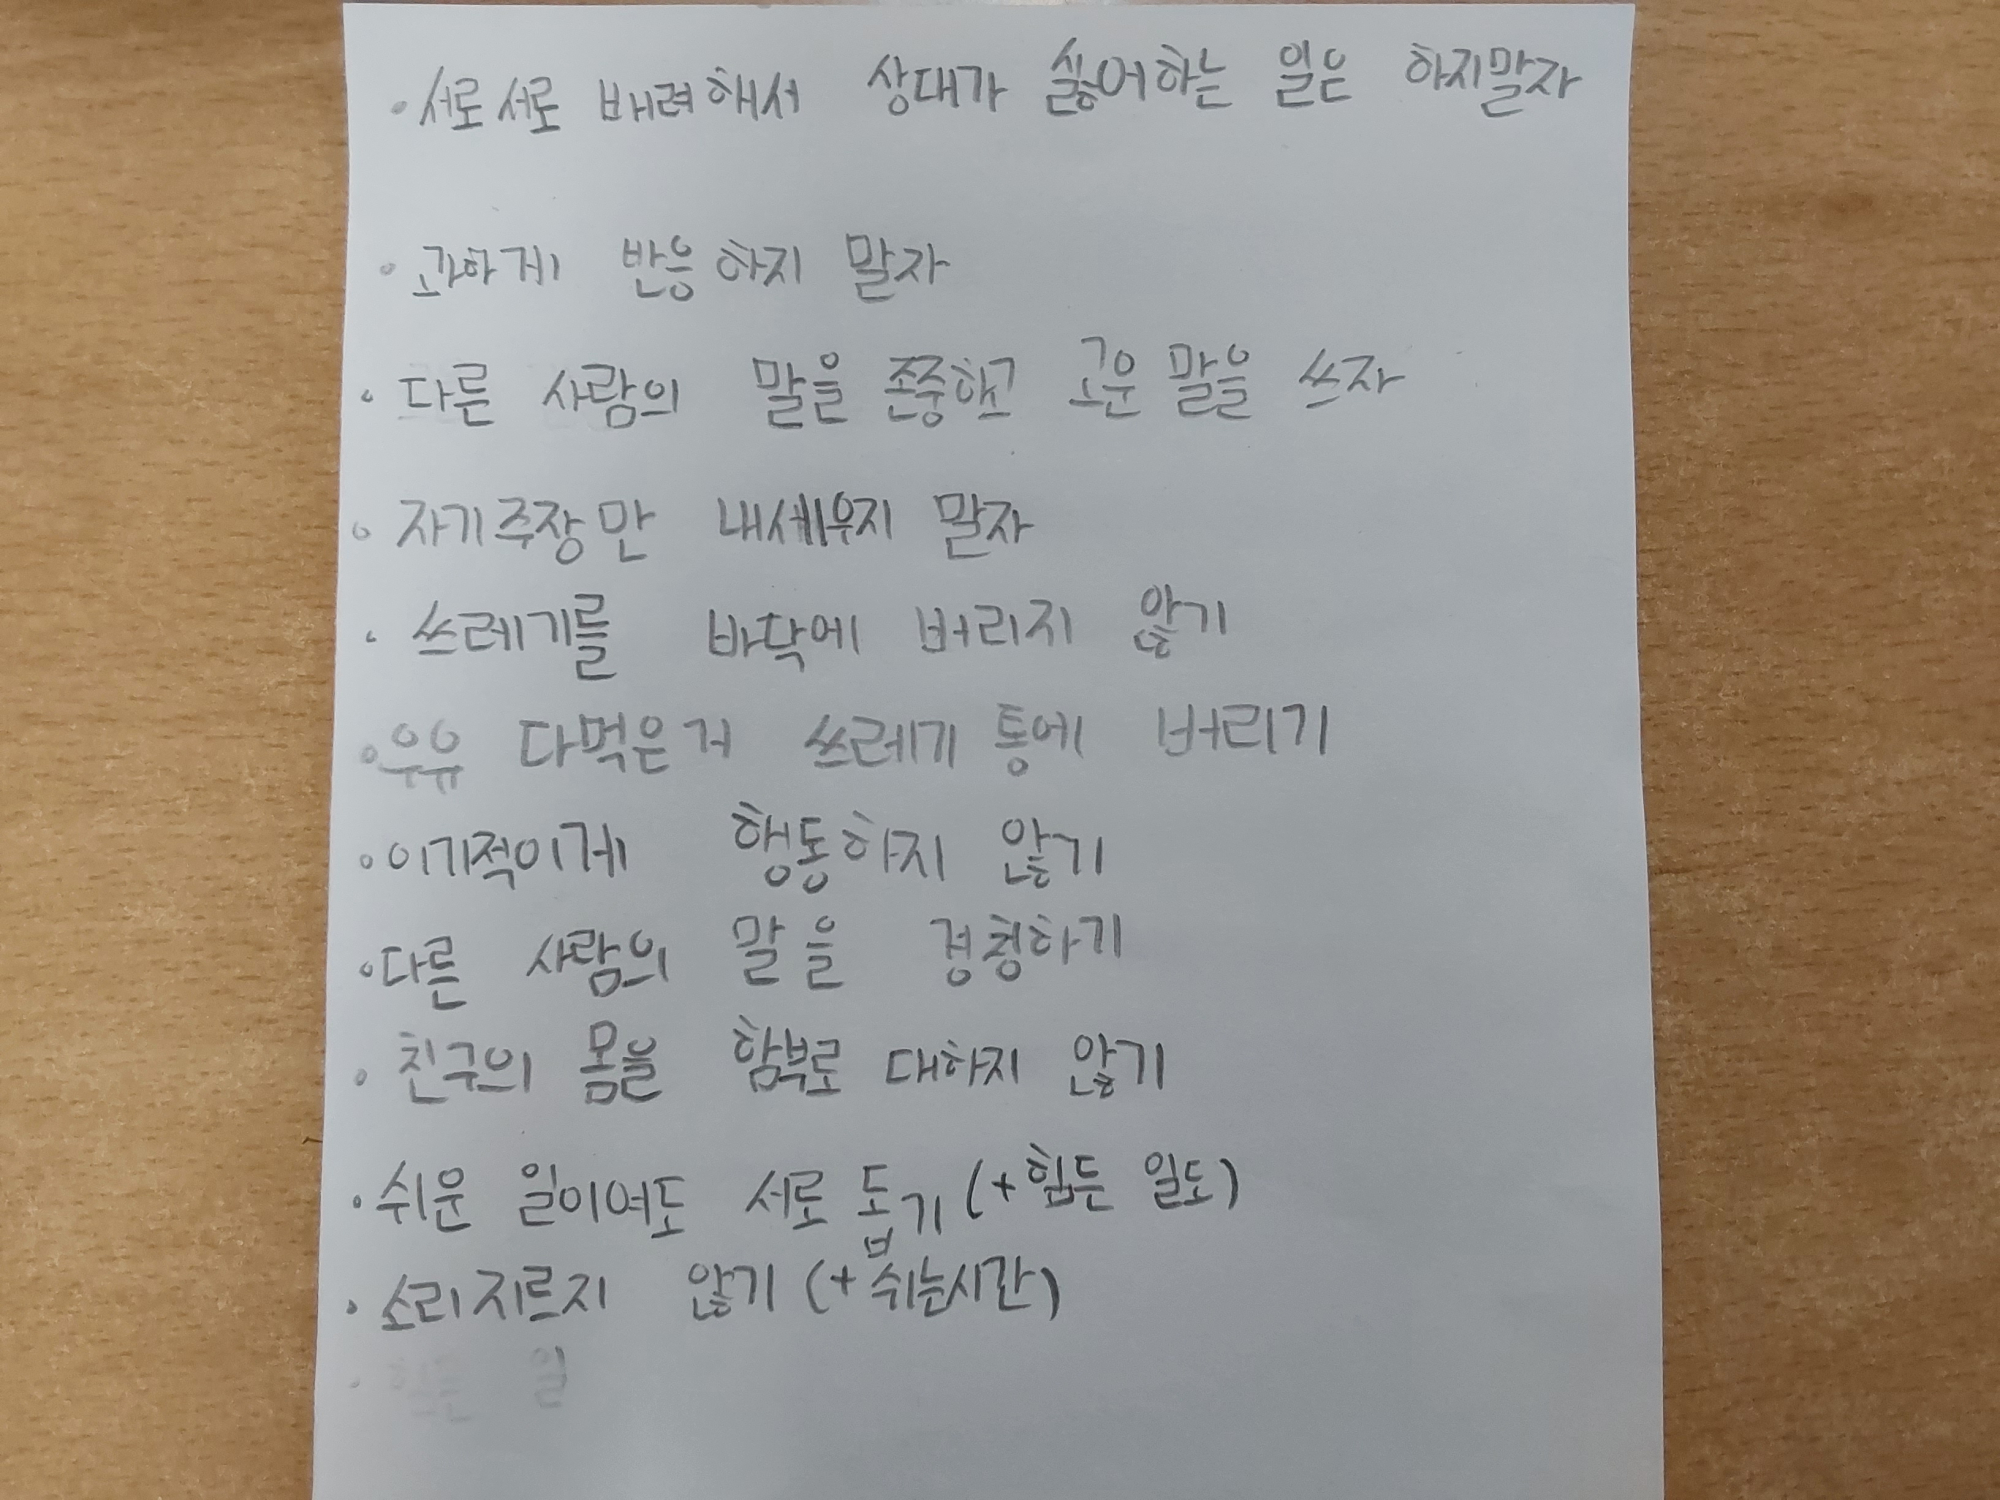 • 서로서로 배려해서 상대가 싫어하는 일은 하지말자
• 과하게 반응하지 말자
• 다른 사람의 말을 존중하고 고운 말을 쓰자
• 자기주장만 내세우지 말자
• 쓰레기를 바닥에 버리지 않기
• 우유 다먹은거 쓰레기통에 버리기
• 이기적이게 행동하지 않기
• 다른 사람의 말을 경청하기
• 친구의 몸을 함부로 대하지 않기
• 쉬운 일이여도 서로 돕기 (+힘든 일도)
• 소리지르지 않기 (+쉬는시간)